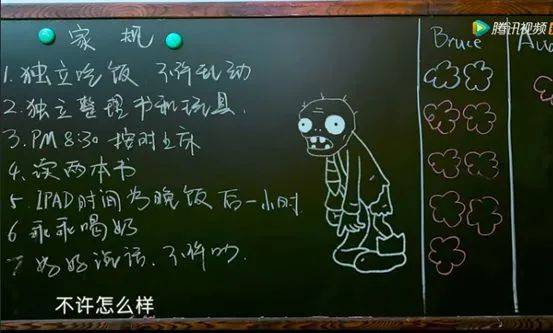 腾讯视频
家规
Bruce
1.独立吃饭 不许乱动
2.独立整理书和玩具.
3.PM 8:30 按时上床
4.读两本书
5.IPAD时间为晚饭后一小时
6 乖乖喝奶
7 好好说话.不许
不许怎么样